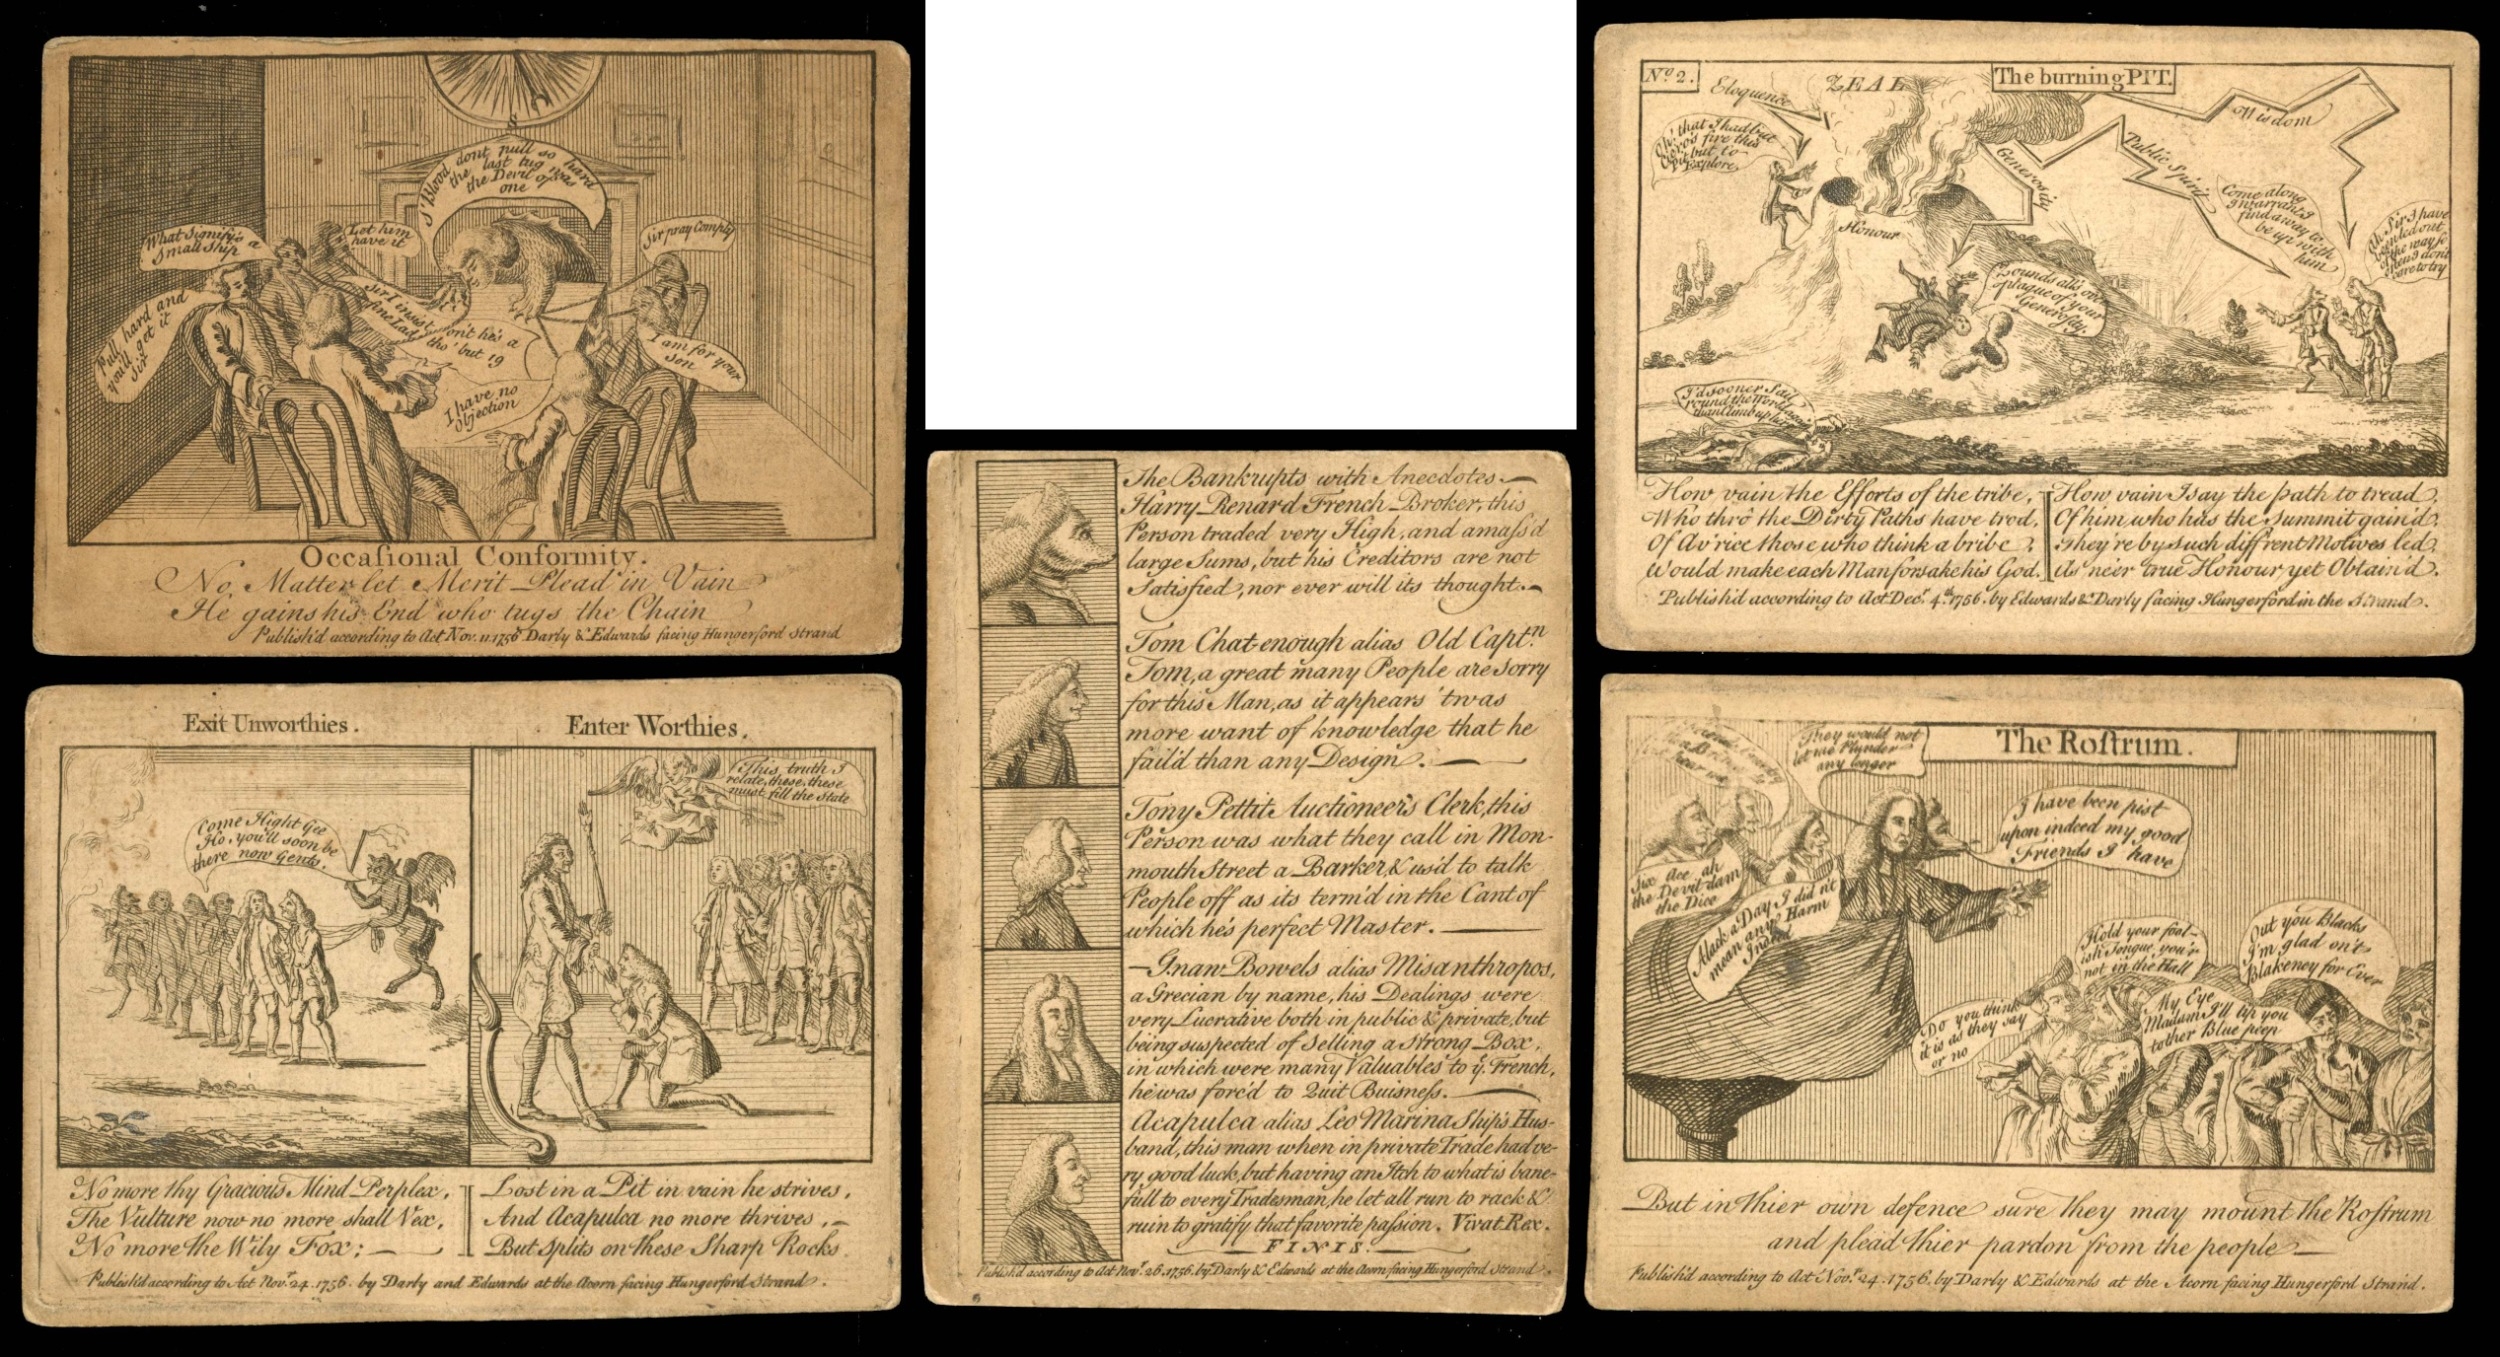 S
S'Blood dont pull so hard
the last tug was
the Devil of a
one
What Signifys a
Small Ship
Let him
have it
Sir pray Comply
Pull hard and
you'll get it
Sir
Sir I insist on't he's a
fine Lad tho' but 19
I am for your
Son
I have no
Objection
Occasional Conformity.
No Matter let Merit Plead in Vain
He gains his End who tugs the Chain
Publish'd according to Act Nov. 11. 1756 Darly & Edwards facing Hungerford Strand
No. 2.
The burning PIT.
Eloquence
ZEAL
Wisdom
Generosity
Public Spirit
Honour
Oh! that I had but
fire this
Pit but to
Explore
Come along
I warrant I
find a way to
be up with
him
Ah Sir I have
out
of the way so
I don't
care to try
Zounds all's over
plague of your
Generosity
I'd sooner Sail
round the World again
than Climb up
How vain the Efforts of the tribe,
Who thro the Dirty Paths have trod,
Of Av'rice those who think a bribe
Would make each Man forsake his God.
How vain I say the path to tread,
Of him who has the Summit gain'd,
They're by Such diff'rent Motives led,
As neer true Honour yet Obtain'd.
Publish'd according to Act Decr. 4th. 1756. by Edwards & Darly facing Hungerford in the Strand.
Exit Unworthies.
Enter Worthies.
Come Hight Gee
Ho, you'll soon be
there now Gents.
This truth I
relate, these, these
must fill the State
No more thy Gracious Mind Perplex,
The Vulture now no more shall Vex,
No more the Wily Fox; —
Lost in a Pit in vain he strives,
And Acapulca no more thrives, —
But Splits on these Sharp Rocks.
Publish'd according to Act Novr. 24. 1756. by Darly and Edwards at the Acorn facing Hungerford Strand.
The Bankrupts with Anecdotes. —
Harry Renard French Broker, this
Person traded very High, and amass'd
large Sums, but his Creditors are not
Satisfied, nor ever will its thought. —
Tom Chat-enough alias Old Captn.
Tom, a great many People are Sorry
for this Man, as it appears 'twas
more want of knowledge that he
fail'd than any Design. —
Tony Pettit Auctioneer's Clerk, this
Person was what they call in Mon-
mouth Street a Barker, & us'd to talk
People off as its term'd in the Cant of
which he's perfect Master. —
— Gnaw Bowels alias Misanthropos,
a Grecian by name, his Dealings were
very Lucrative both in public & private, but
being suspected of Selling a Strong Box,
in which were many Valuables to ye. French,
he was forc'd to Quit Buisness. —
Acapulca alias Leo Marina Ship's Hus-
band, this man when in private Trade had ve-
ry good luck, but having an Itch to what is bane-
full to every Tradesman, he let all run to rack &
ruin to gratify that favorite passion. Vivat Rex.
FINIS.
Publish'd according to Act Novr. 26. 1756. by Darly & Edwards at the Acorn facing Hungerford Strand.
The Rostrum.
They would not
let me Plunder
any longer
I have been pist
upon indeed my good
Friends I have
Six Ace ah
the Devil dam
the Dice
Alack a Day I did n't
mean any Harm
Indeed
Hold your fool-
ish Tongue, you'r
not in the Hall
Out you Blacks
I'm glad on't
Blakeney for Ever
Do you think
it is as they say
or no
My Eye
Madam I'll tip you
tother Blue peep
But in thier own defence sure they may mount the Rostrum
and plead thier pardon from the people —
Publish'd according to Act Novr. 24. 1756. by Darly & Edwards at the Acorn facing Hungerford Strand.